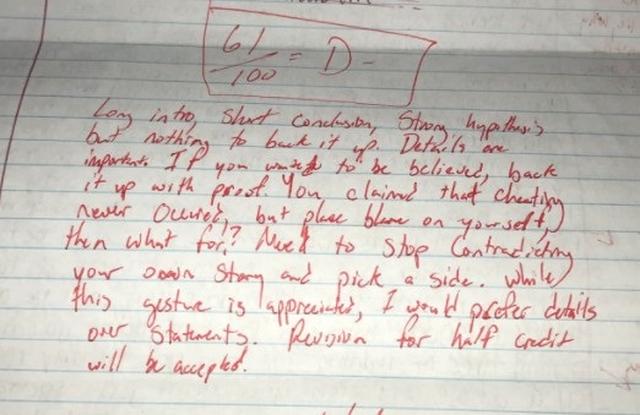 61
100 = D-
Long intro, Short conclusion, Strong hypothesis
but nothing to back it up. Details are
important. If you want to be believed, back
it up with proof. You claimed that cheating
never Occured, but place blame on yourself,
then what for? Need to Stop Contradicting
your own Story and pick a side. While
this gesture is appreciated, I would prefer details
over Statements. Revision for half credit
will be accepted.